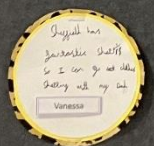 Sheffield has
fantastic shops
So I can go out clothes
shopping with my dad
Vanessa